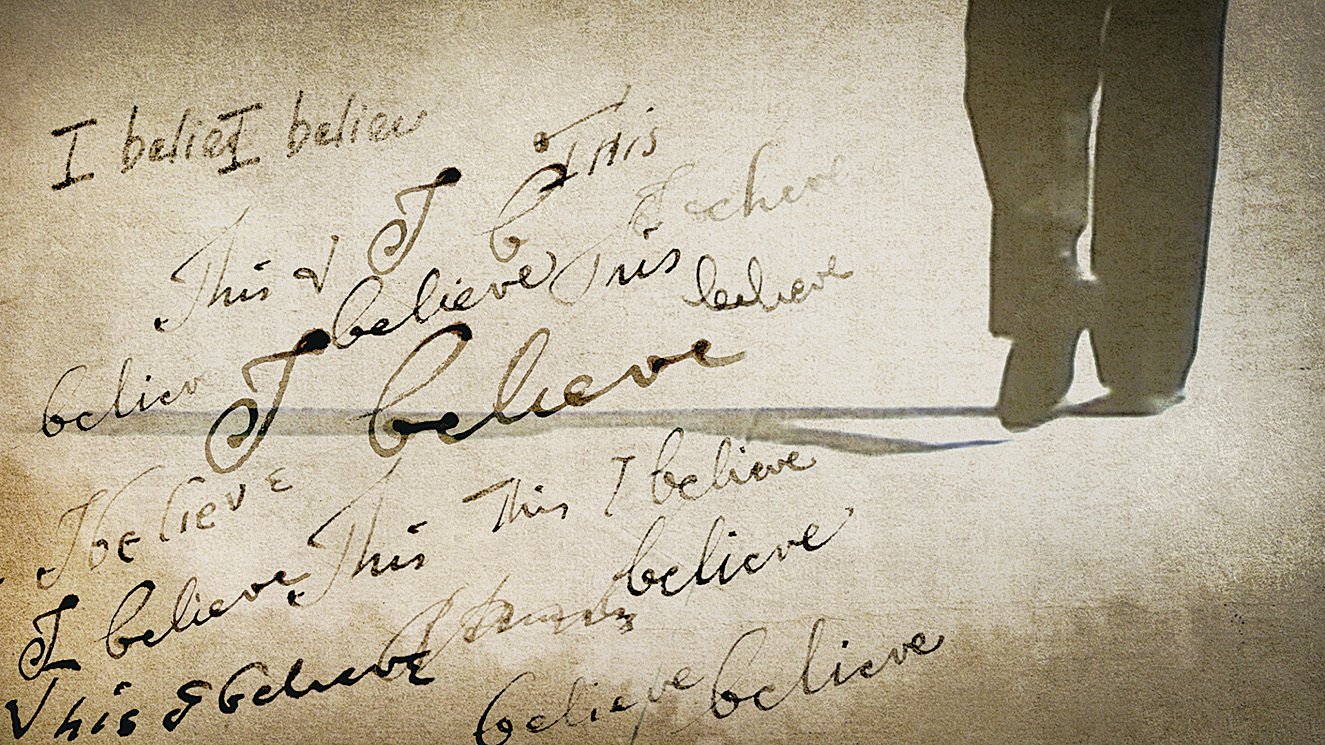 I belie I believ
This
This I I b
believe This believe
believ I believe
I believe
This This I believe
I believe This believe
This I believe
believe believe